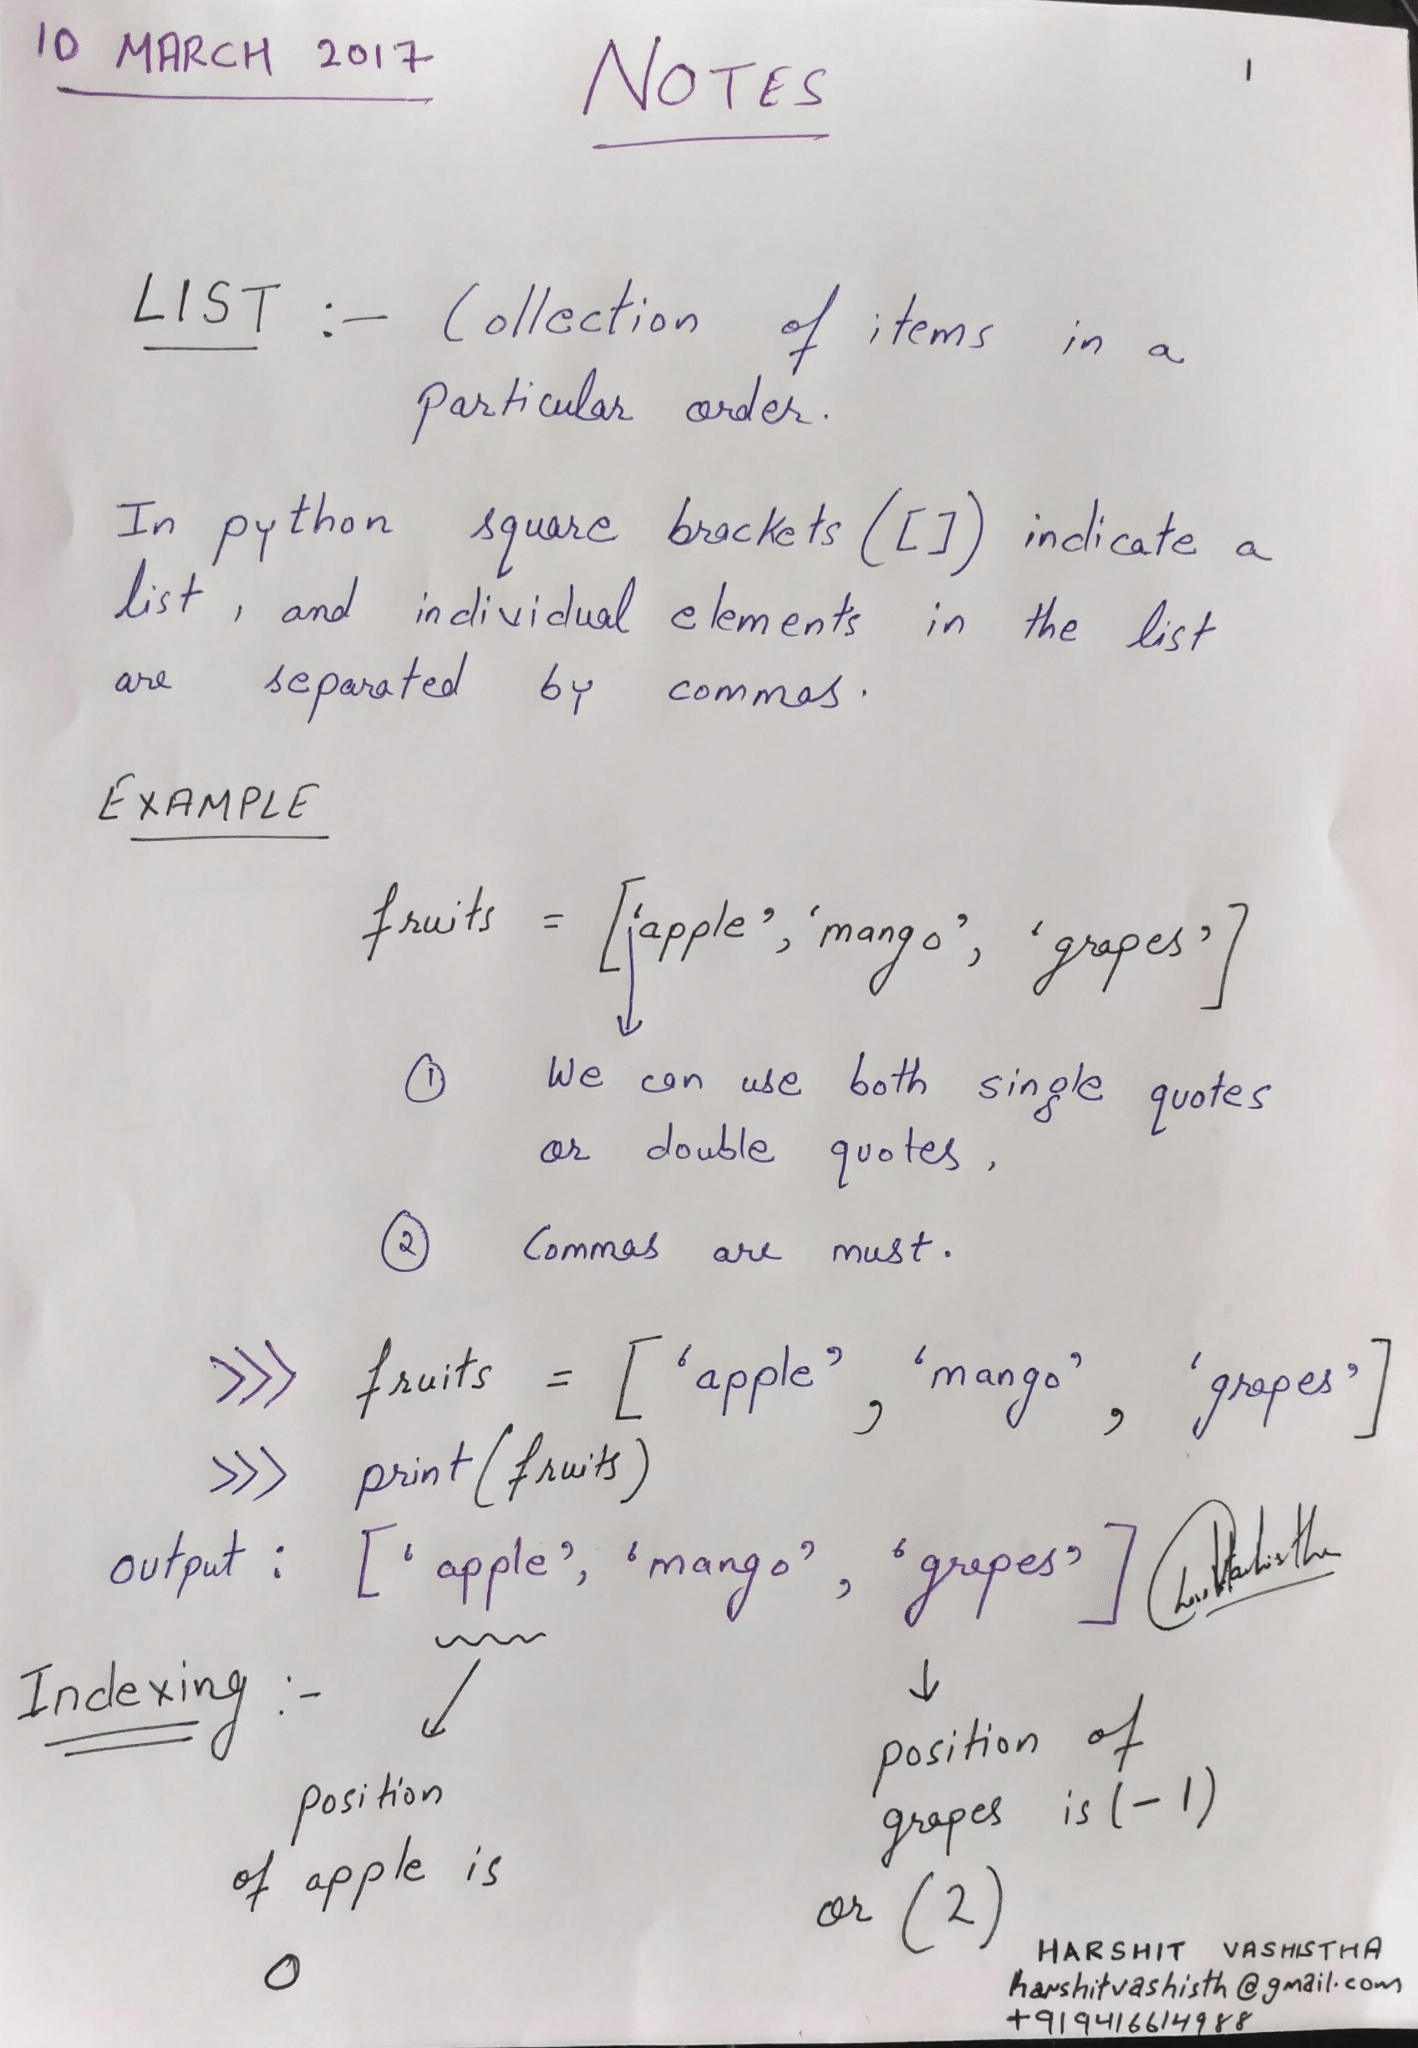 10 MARCH 2017
NOTES
1
LIST :- Collection of items in a
particular order.
In python square brackets ([]) indicate a
list, and individual elements in the list
are separated by commas.
EXAMPLE
fruits = ['apple', 'mango', 'grapes']
① We can use both single quotes
or double quotes,
② Commas are must.
>>> fruits = ['apple', 'mango', 'grapes']
>>> print(fruits)
output : ['apple', 'mango', 'grapes']
Indexing :-
position
of apple is
0
position of
grapes is (-1)
or (2)
HARSHIT VASHISTHA
harshitvashisth@gmail.com
+919416614988